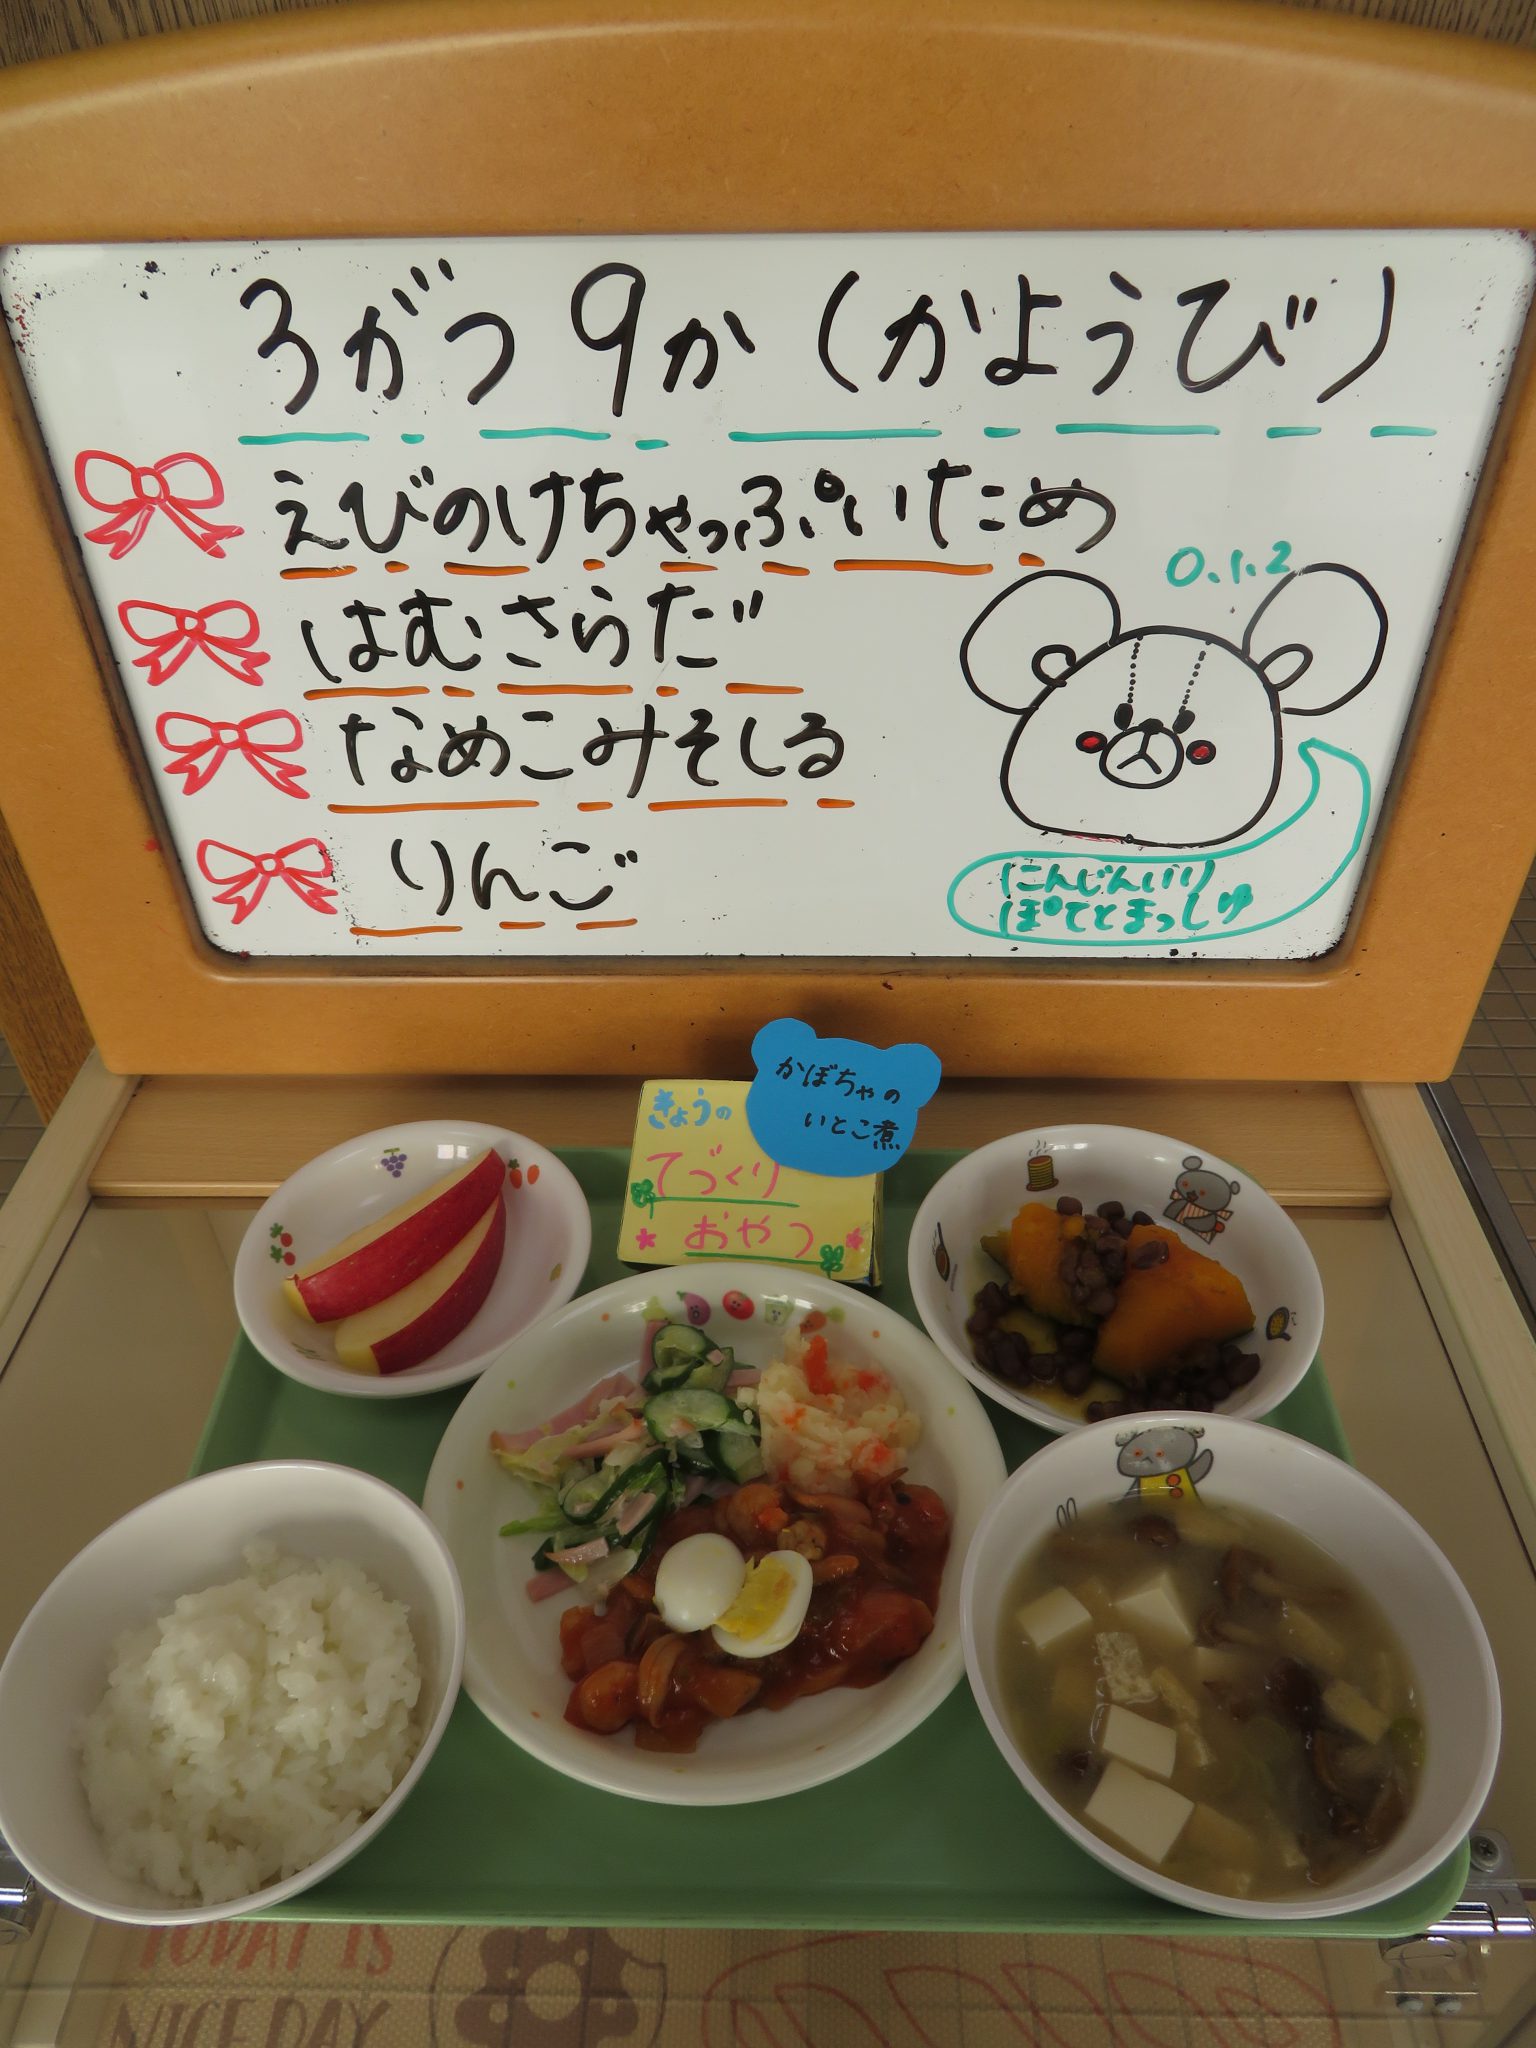 3がつ9か(かようび)
えびのけちゃっぷいため
はむさらだ
なめこみそしる
りんご
0.1.2
にんじんいり
ぽてとまっしゅ
かぼちゃの
いとこ煮
きょうの
てづくり
おやつ
TODAY IS
NICE DAY